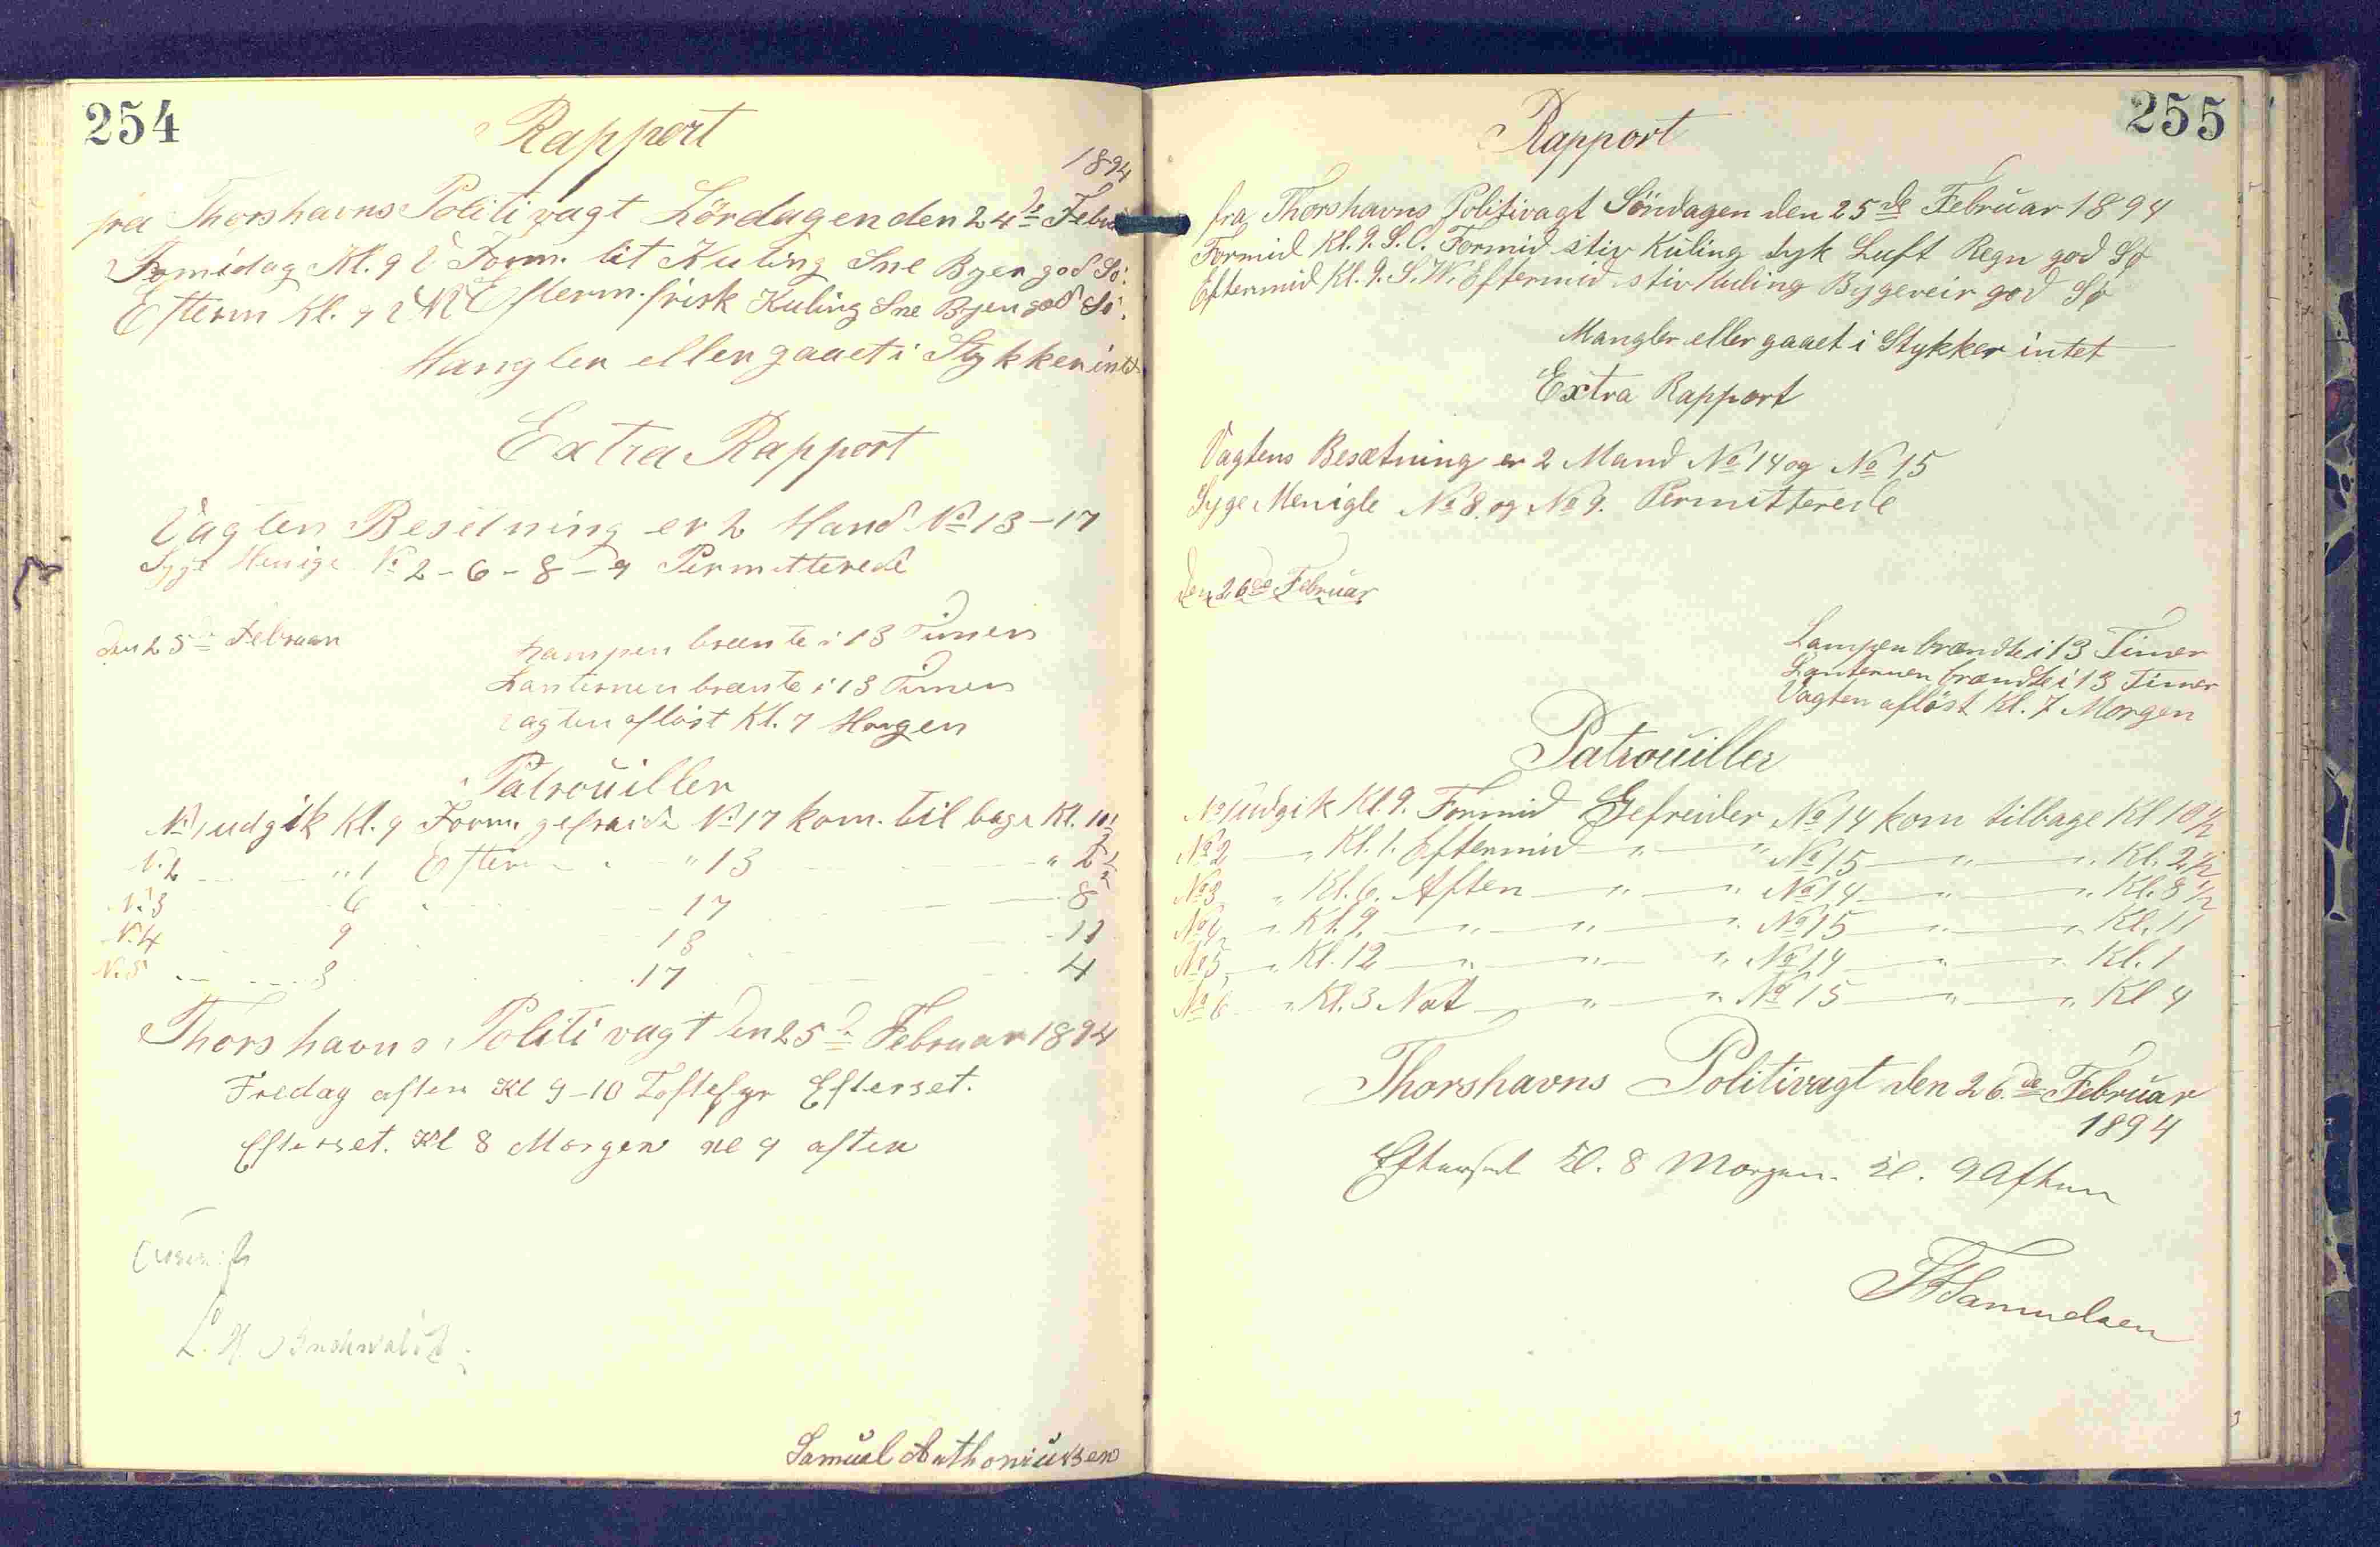 254
Rapport
1894
fra Thorshavns Politivagt Lördagen den 24de Febru
Formidag Kl. 9 V Form. lit Kuling Sne Byer god Sö.
Efterm Kl. 9 Efterm. frisk Kuling Sne Byer god Sö.
Mangler eller gaaet i Stykker intet
Extra Rapport
Vagten Besetning er 2 Mand No 13-17
Syge Menige No 2-6-8-9 Permitterede
den 25de Februar
Lampen brænte i 13 Timer
Lanternen brænte i 13 Timer
Vagten aflöst Kl. 7 Morgen
Patrouiller
No 1 udgik Kl. 9 Form. gefraide No 17 kom. til bage Kl. 10½
No 2 " 1 Efterm " 13 " 2½
No 3 6 17 8
No 4 9 13 11
No 5 3 17 4
Thorshavns Politivagt den 25de Februar 1894
Fredag aften Kl 9-10 Efterset.
Efterset. Kl 8 Morgen Kl 9 aften
L. H.
Samuel Anthoniussen
255
Rapport
fra Thorshavns Politivagt Söndagen den 25de Februar 1894
Formid Kl. 9. S.O. Formid stiv Kuling tyk Luft Regn god Sø
Eftermid Kl. 9. S.W. Eftermid stiv Kuling Bygeveir god Sø
Mangler eller gaaet i Stykker intet
Extra Rapport
Vagtens Besætning er 2 Mand No 14 og No 15
Syge Menigle No 8. og No 9. Permitterede
Den 26de Februar
Lampen brændte i 13 Timer
Lanternen brændte i 13 Timer
Vagten aflöst Kl. 7 Morgen
Patrouiller
No 1 Udgik Kl. 9. Formid Gefreider No 14 kom tilbage Kl 10½
No 2 " Kl. 1. Eftermid " " No 15 " " Kl. 2½
No 3 " Kl. 6. Aften " " No 14 " " Kl. 8½
No 4 " Kl. 9. " " " No 15 " " Kl. 11
No 5 " Kl. 12 " " " No 14 " " Kl. 1
No 6 " Kl. 3 Nat " " No 15 " " Kl 4
Thorshavns Politivagt den 26.de Februar
1894
Efterset Kl. 8 Morgen. Kl. 9 Aften
Samuelsen